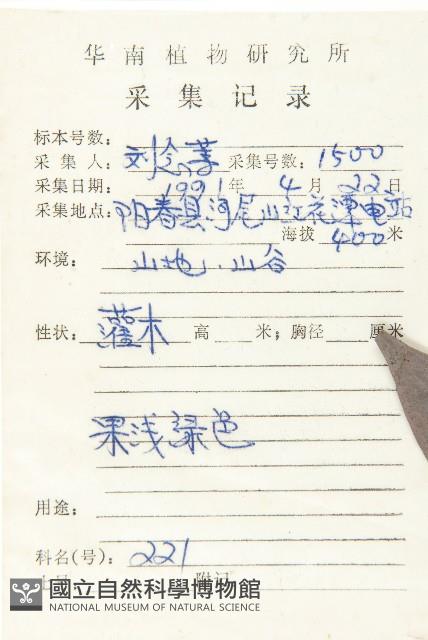 华南植物研究所
采集记录
标本号数：
采集人：刘念 采集号数：1500
采集日期：1991年4月22日
采集地点：阳春县河尾山红花潭电站
海拔 400 米
环境：山地、山谷
性状：灌木 高 米；胸径 厘米
果浅绿色
用途：
科名(号)：221
附记
國立自然科學博物館
NATIONAL MUSEUM OF NATURAL SCIENCE